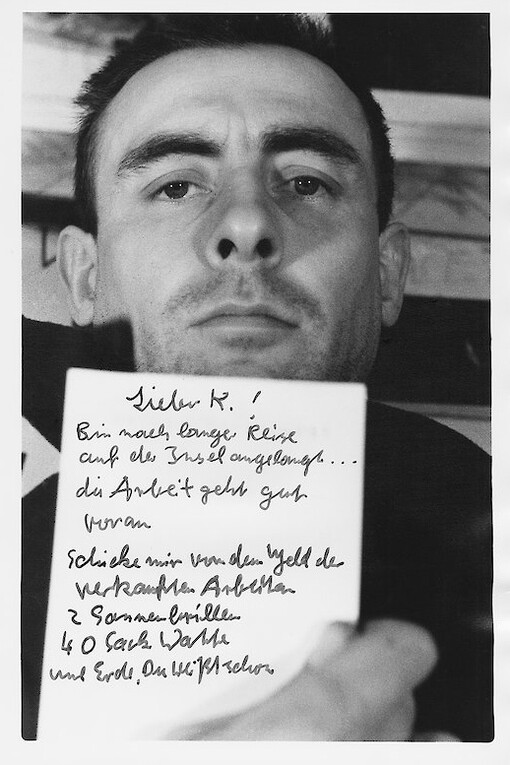 Lieber K. !
Bin nach langer Reise
auf der Insel angelangt ...
die Arbeit geht gut
voran
Schicke mir von dem Geld der
verkauften Arbeiten
2 Sonnenbrillen
40 Sack Watte
und Erde, Du weißt schon